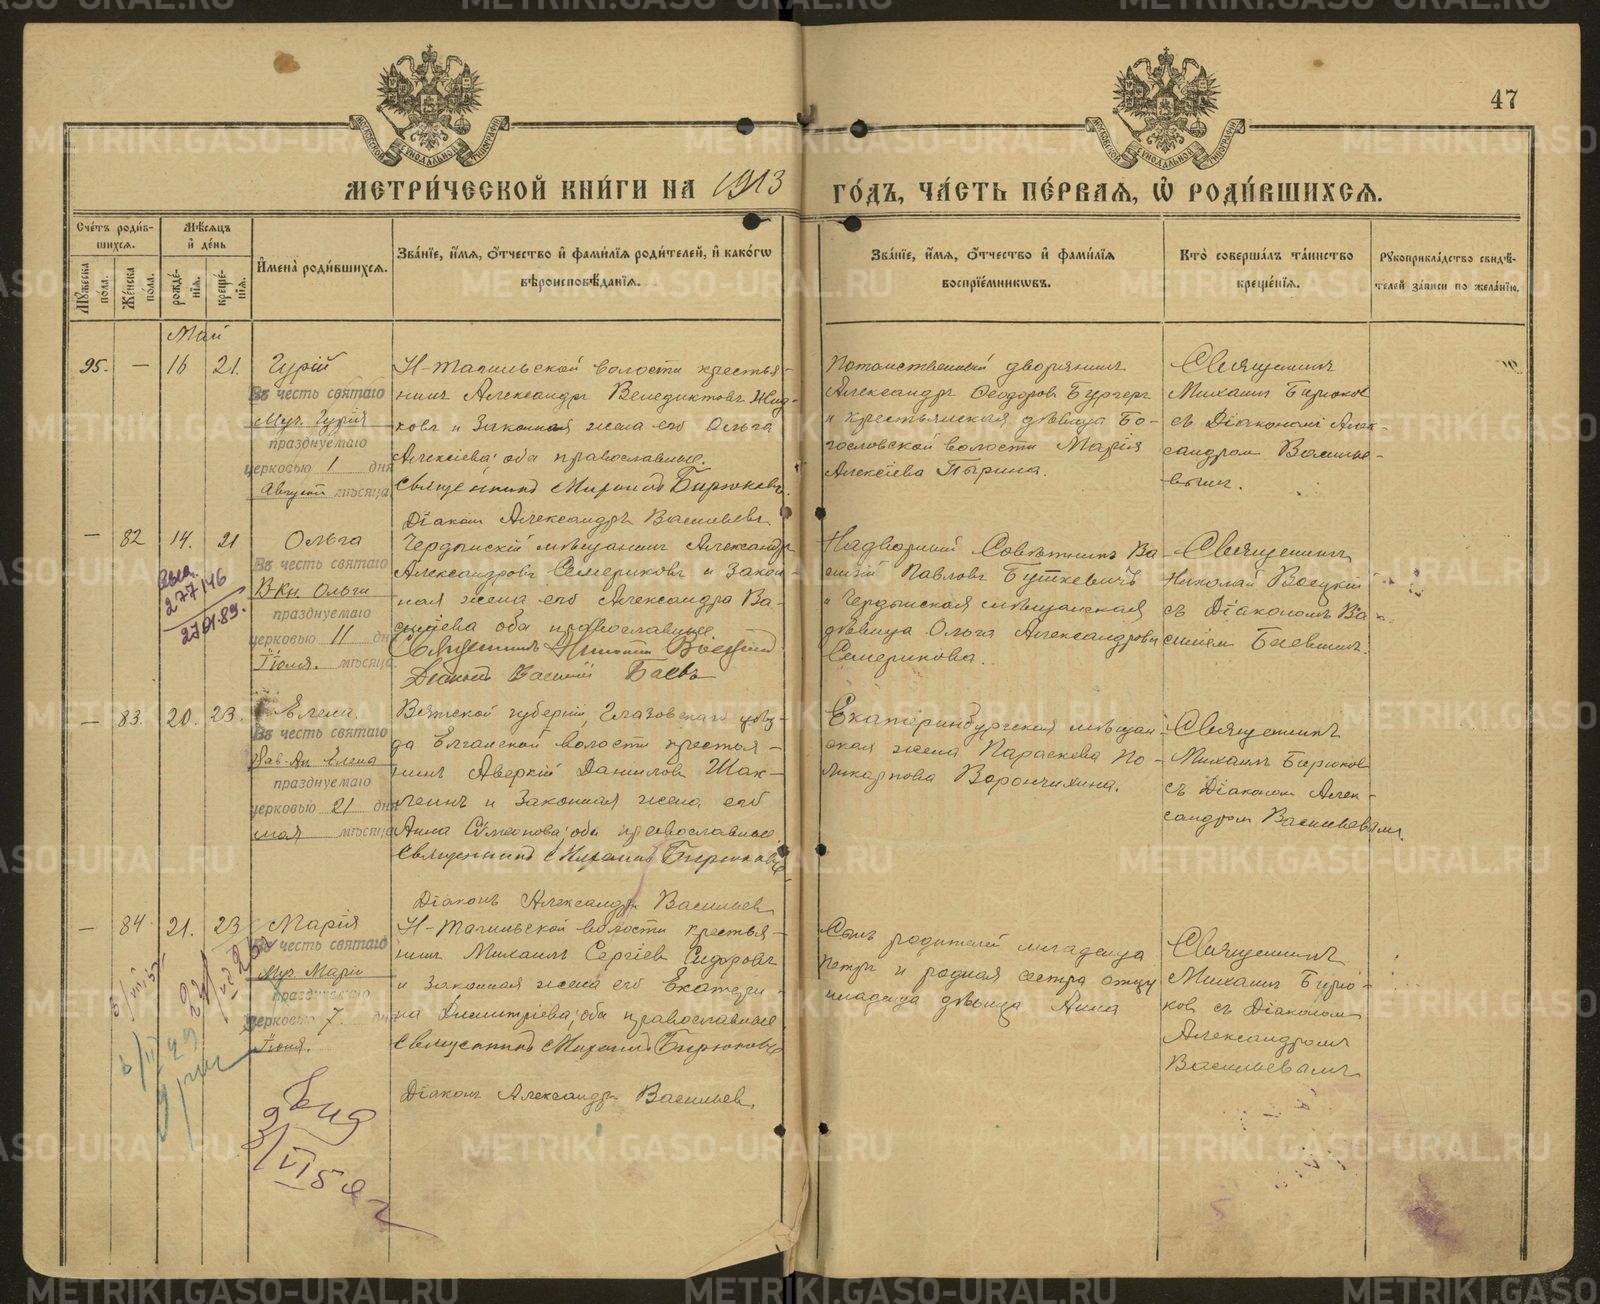 47
МЕТРИ́ЧЕСКОЙ КНИ́ГИ НА 1913 ГО́ДЪ, ЧА́СТЬ ПЕ́РВАЯ, Ѡ҆ РОДИ́ВШИХСЯ.
Сче́тъ роди́в-
шихся.
Му́жеска пола.
Же́нска пола.
Мѣ́сяцъ
и҆ де́нь
рожде́-
нїя.
креще́-
нїя.
И҆мена̀ роди́вшихся.
Зва́нїе, и҆́мя, ѻ҆́тчество и҆ фами́лїя роди́телей, и҆ како́гѡ
вѣроисповѣ́данїя.
Зва́нїе, и҆́мя, ѻ҆́тчество и҆ фами́лїя
воспрїе́мникѡвъ.
Кто̀ соверша́лъ та́инство
креще́нїя.
Рꙋкоприкла́дство свидѣ́-
телей за́писи по жела́нїю.
Май
95. — 16 21. Гурій
Въ честь святаго
Муч. Гурія
празднуемаго
церковью 1 дня
Августа мѣсяца
Н-Тагильской волости крестья-
нинъ Александръ Венедиктовъ
и Законная жена его Ольга
Алексіева; оба православные.
Священникъ Михаилъ Бирюковъ.
Діаконъ Александръ Васильевъ
Потомственный дворянинъ
Александръ Ѳеодоровъ Бургеръ
и крестьянская дѣвица Бо-
гословской волости Марія
Алексіева Пырина.
Священникъ
Михаилъ Бирюков
съ Діакономъ Алек-
сандром Василье-
вымъ.
— 82 14. 21 Ольга
Въ честь святаго
В. Кн. Ольги
празднуемаго
церковью 11 дня
Іюля. мѣсяца
277146
Чердынскій мѣщанинъ Александръ
Александровъ Семериковъ и Закон-
ная жена его Александра Ва-
силіева оба православные.
Священникъ Николай Воецкій
Діаконъ Василій Баевъ
Надворный Совѣтникъ Ва-
силій Павловъ Буткевичъ
и Чердынская мѣщанская
дѣвица Ольга Александрова
Семерикова.
Священникъ
Николай Воецкій
съ Діакономъ Ва-
силіем Баевымъ.
— 83. 20. 23. Елена.
Въ честь святаго
Рав-Ап. Елена
празднуемаго
церковью 21 дня
мая мѣсяца
Вятской губерніи, Глазовскаго уѣз-
да Елганской волости крестья-
нинъ Аверкій Даниловъ Шак-
леинъ и Законная жена его
Анна Симеонова; оба православные
Священникъ Михаилъ Бирюковъ
Діаконъ Александръ Васильев
Екатеринбургская мѣщан-
ская жена Параскева По-
ликарпова Ворончихина.
Священникъ
Михаилъ Бирюков
съ Діакономъ Алек-
сандром Васильевымъ.
— 84. 21. 23 Марія
Въ честь святаго
Муч. Маріи
празднуемаго
церковью 7. дня
Іюня.
Н-Тагильской волости крестья-
нинъ Михаилъ Сергіев Сидоровъ
и Законная жена его Екатери-
на Димитріева; оба православные
Священникъ Михаилъ Бирюковъ
Діаконъ Александръ Васильев.
Сынъ родителей младенца
Петръ и родная сестра отцу
младенца дѣвица Анна
Священникъ
Михаилъ Бирю-
ков съ Діакономъ
Александромъ
Васильевымъ
METRIKI.GASO-URAL.RU